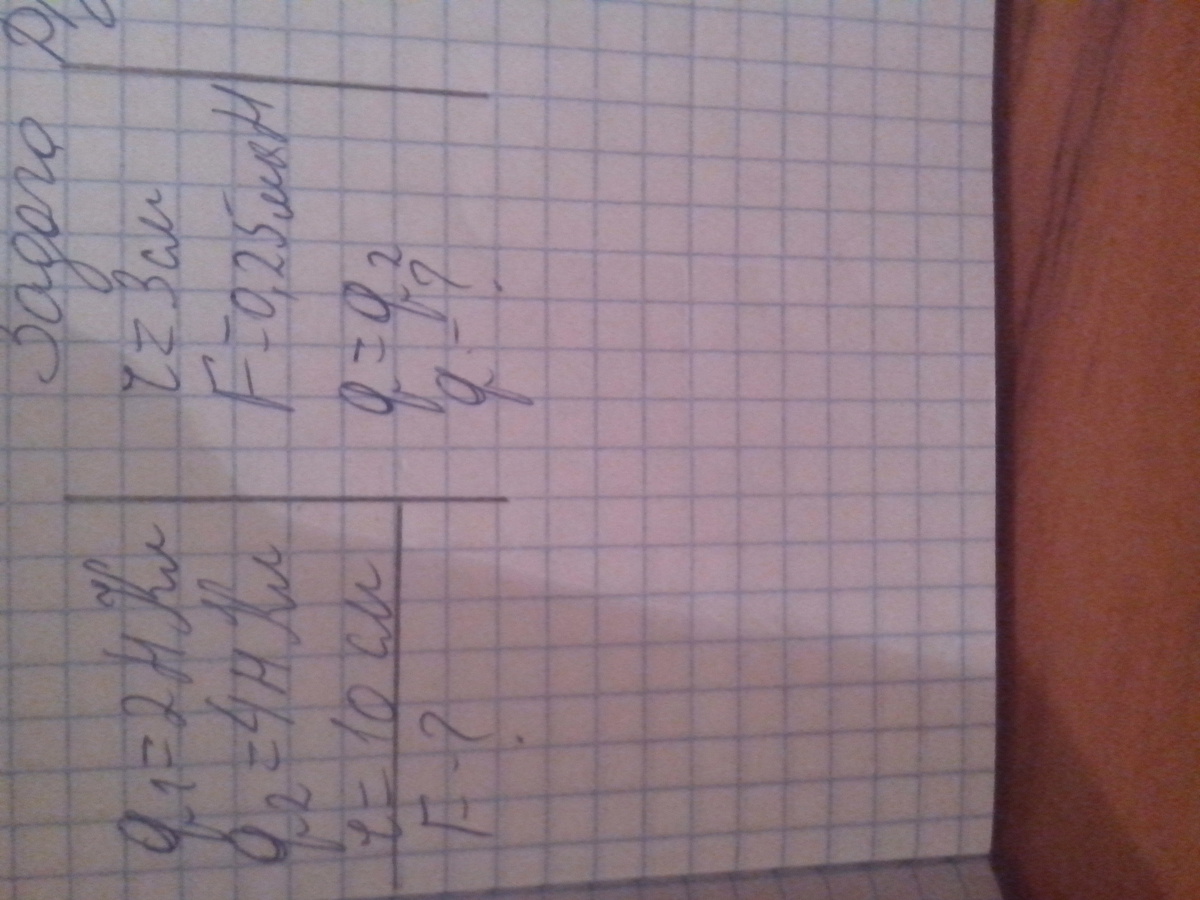 q1=2нКл
q2=4нКл
r=10 см
F-?
r=3см
F=0,25мкН
q1=q2
q-?